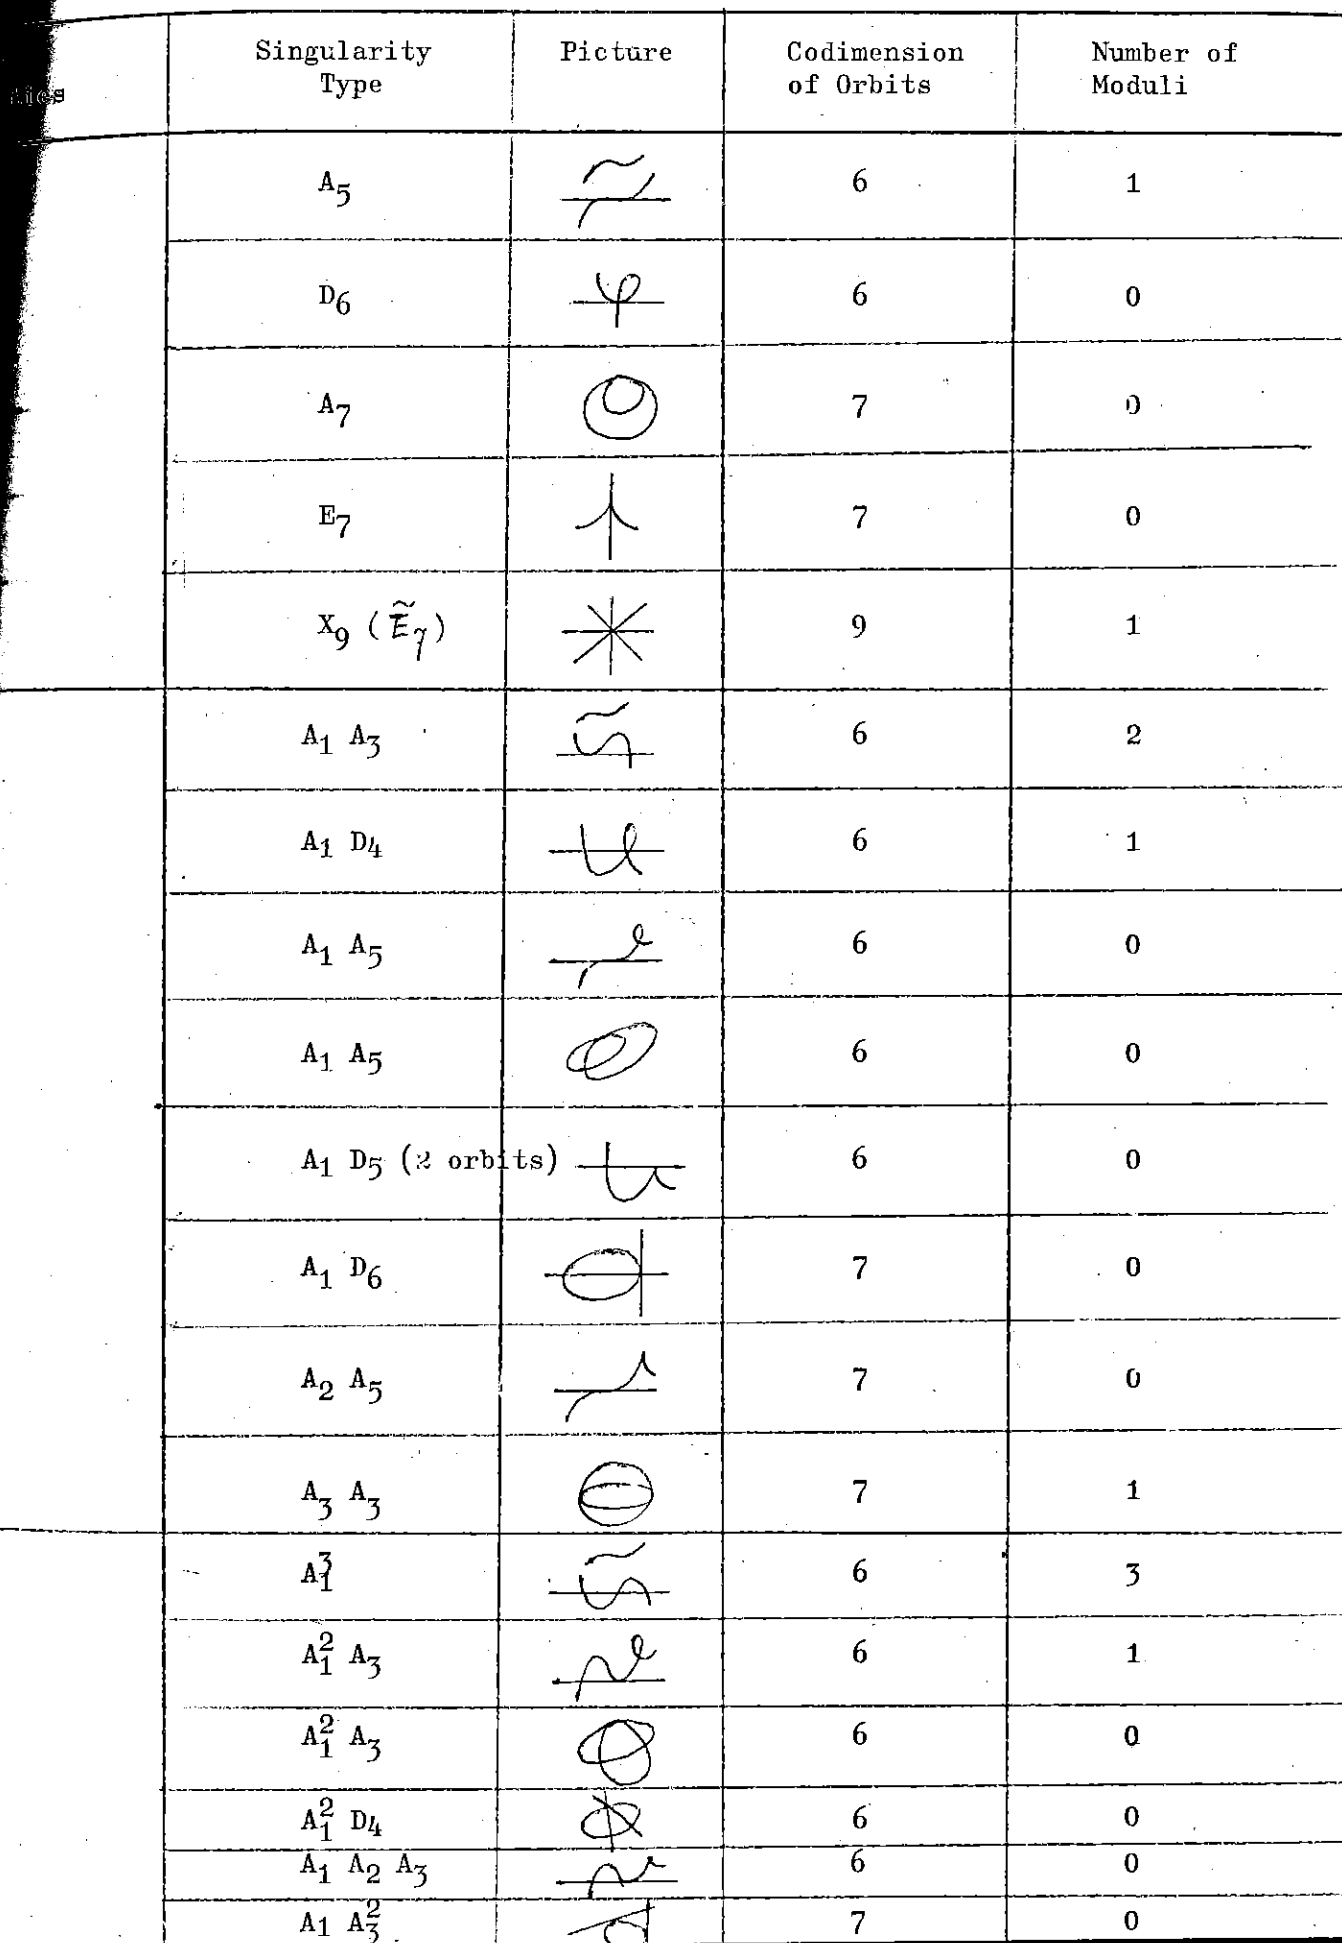 Singularity Type Picture Codimension of Orbits Number of Moduli
A5 6 1
D6 6 0
A7 7 0
E7 7 0
X9 (Ẽ7) 9 1
A1 A3 6 2
A1 D4 6 1
A1 A5 6 0
A1 A5 6 0
A1 D5 (2 orbits) 6 0
A1 D6 7 0
A2 A5 7 0
A3 A3 7 1
A1^3 6 3
A1^2 A3 6 1
A1^2 A3 6 0
A1^2 D4 6 0
A1 A2 A3 6 0
A1 A3^2 7 0